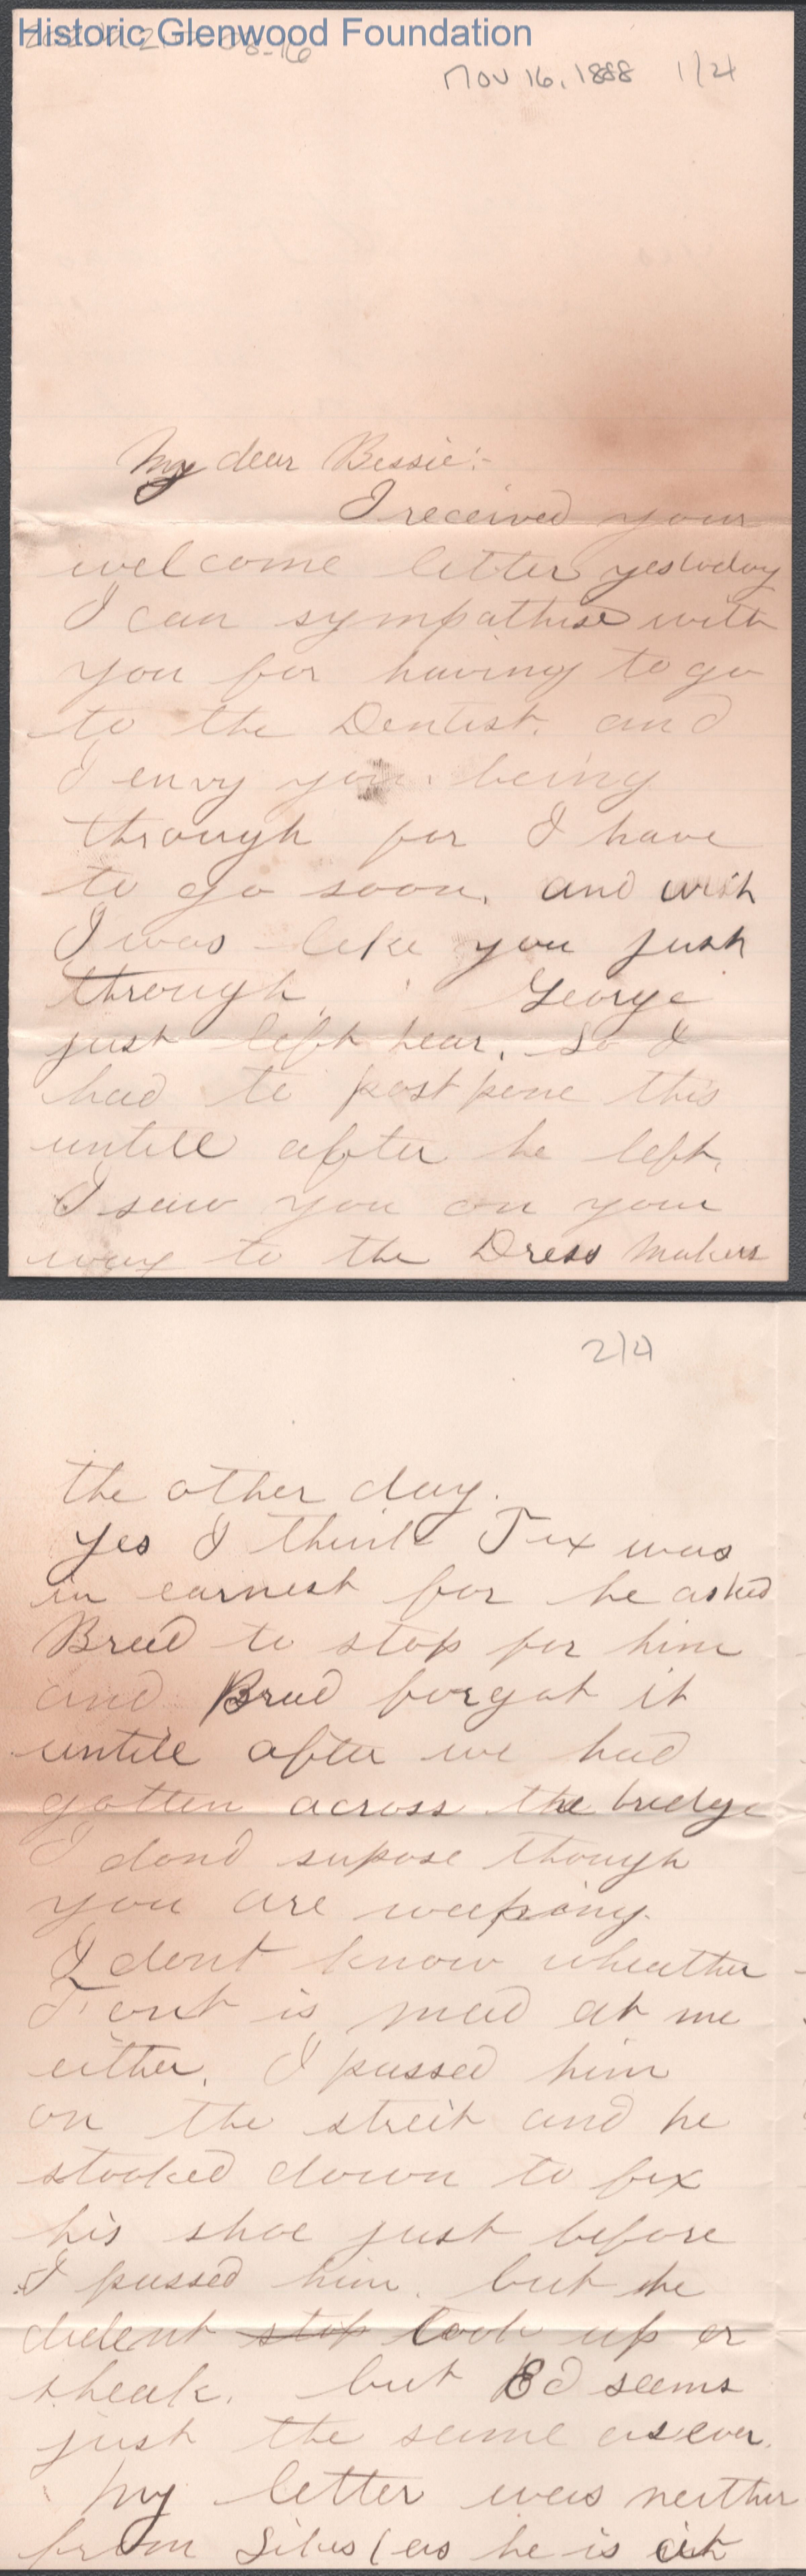 Historic Glenwood Foundation
Nov 16, 1888 1/4
My dear Bessie:-
I received your
welcome letter yestoday
I can sympathise with
you for having to go
to the Dentist. and
I envy you. being
through for I have
to go soon. and wish
I was like you just
through. George
just left hear. So I
had to postpone this
untill after he left.
I saw you on your
way to the Dress makers
2/4
the other day.
Yes I think Tux was
in earnest for he asked
Brud to stop for him
and Brud forgot it
untill after we had
gotten across the bridge
I dond supose though
you are weeping.
I dont know wheather
is mad at me
either. I passed him
on the street and he
stooped down to fix
his shoe just before
I passed him. but he
dident stop look up or
speak. but Ed seems
just the same as ever.
My letter was neither
from Silas (as he is at